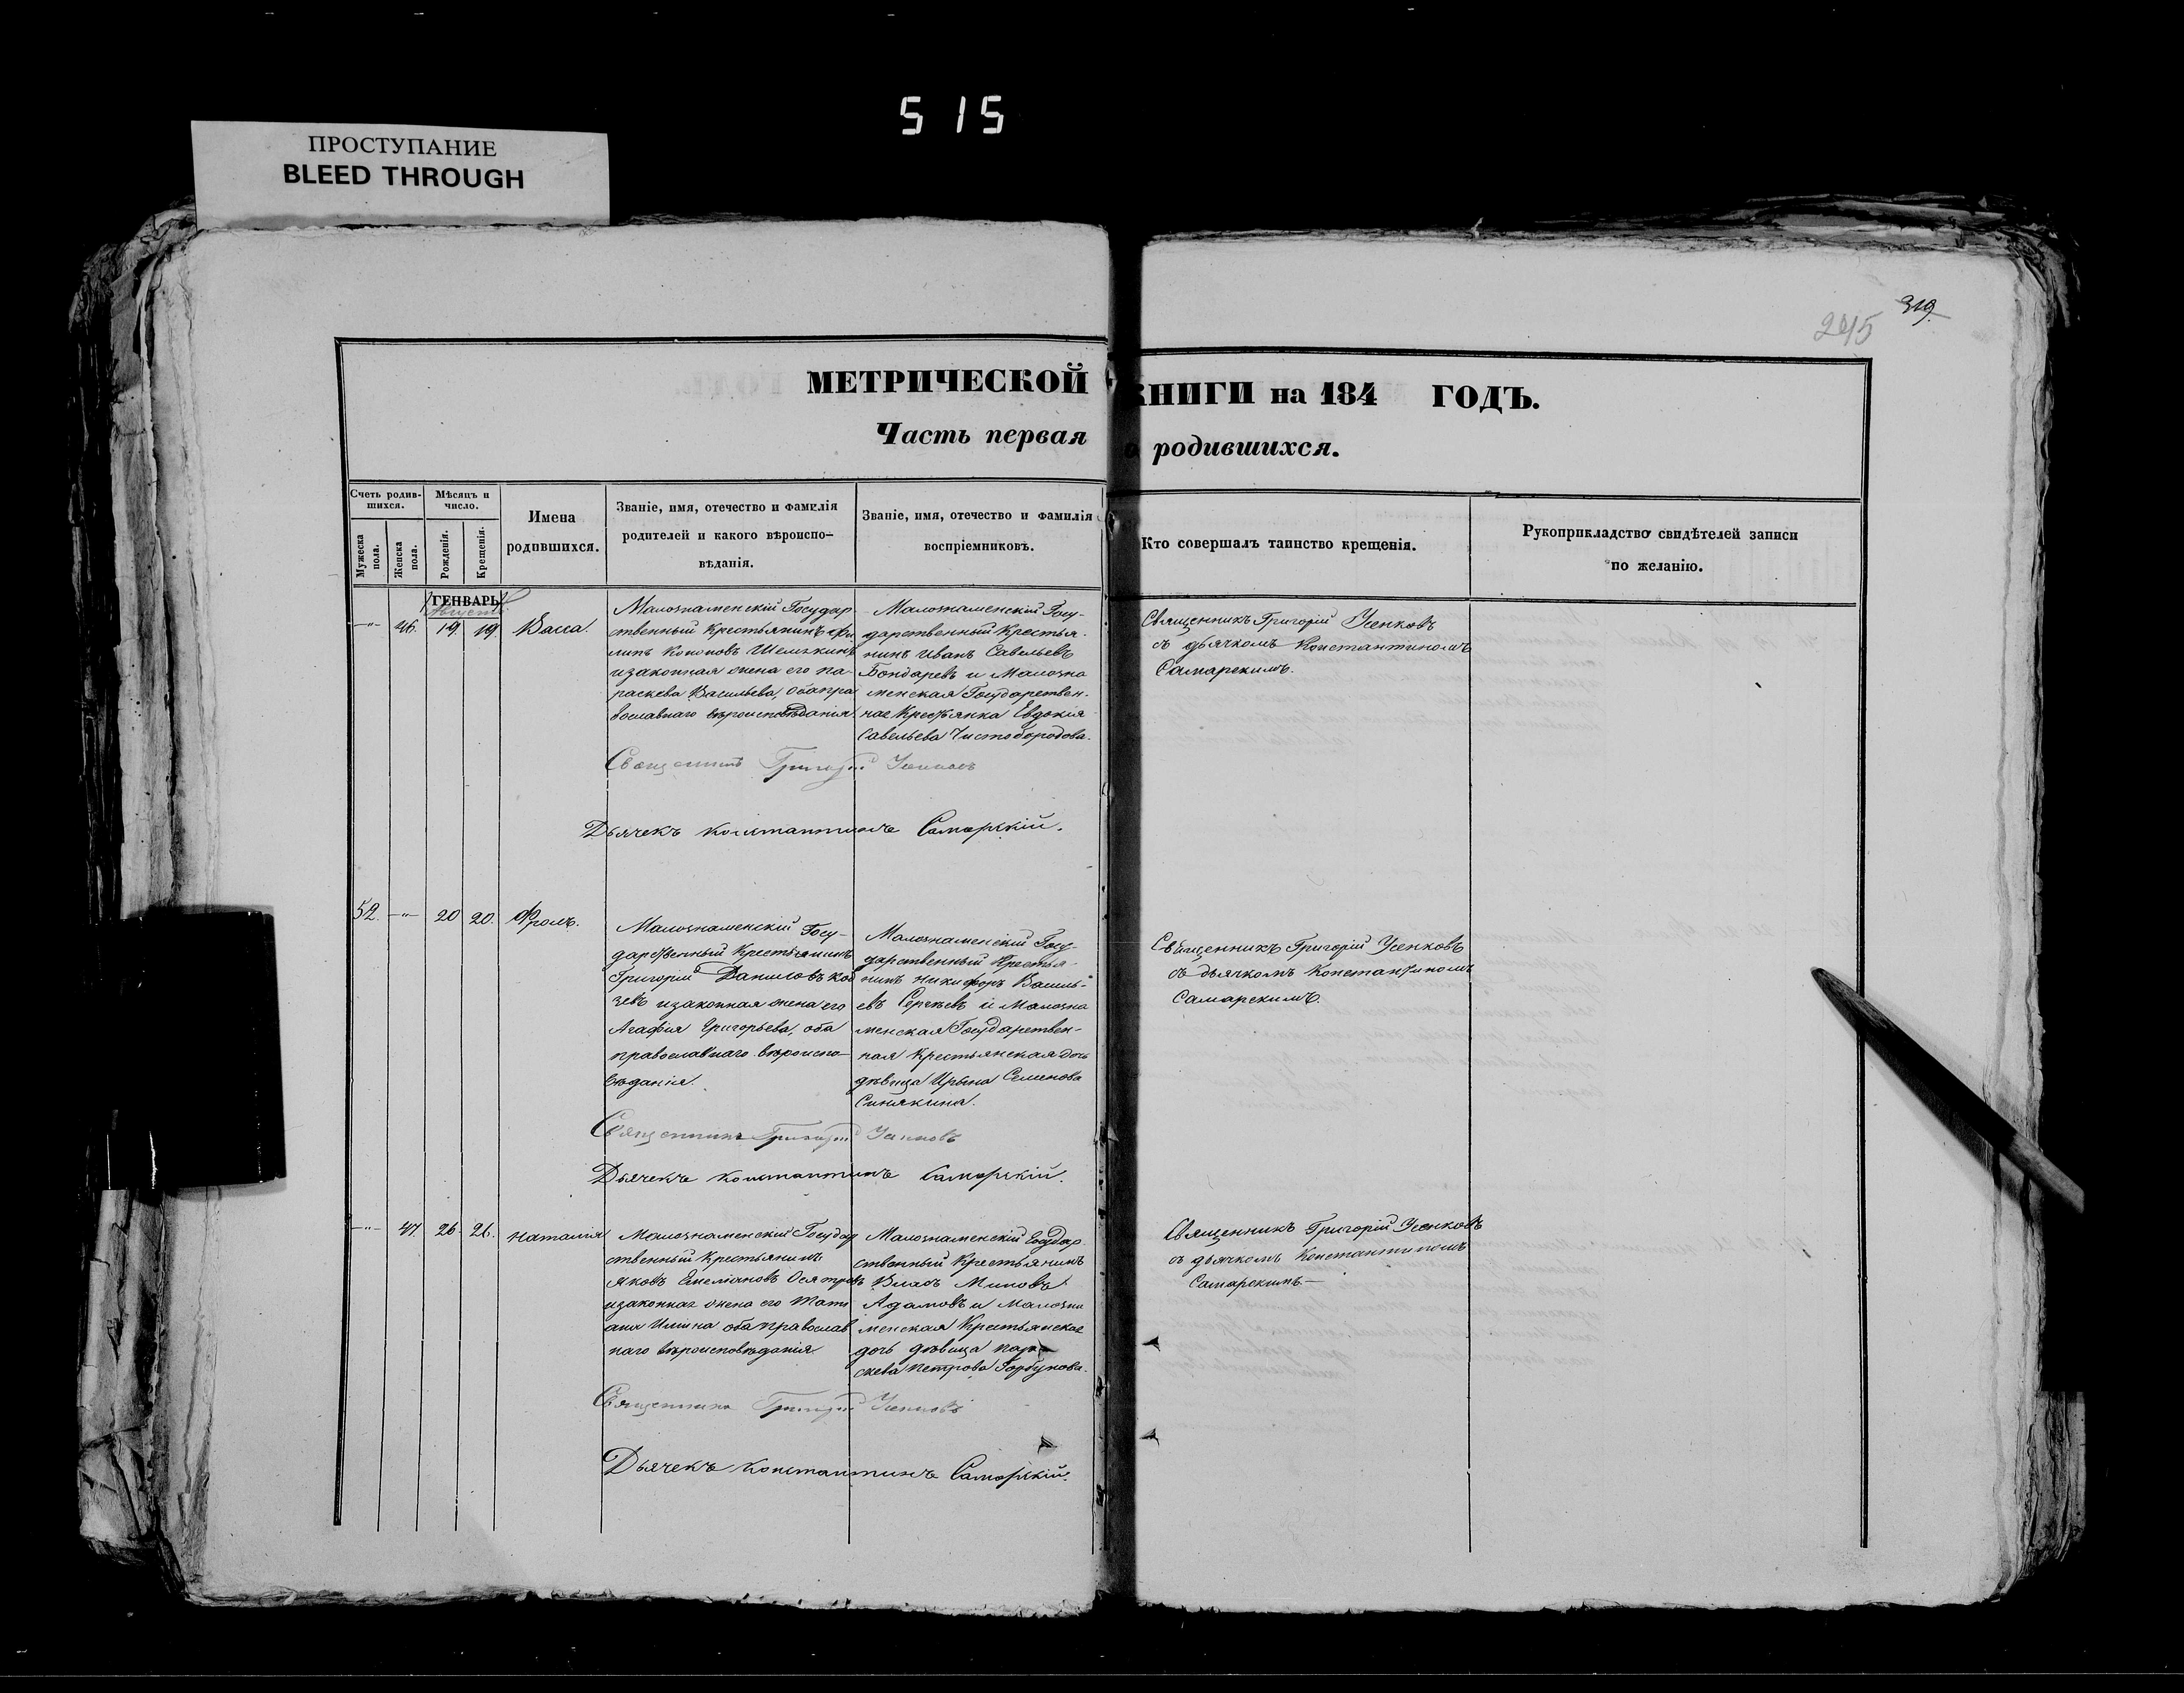 515
ПРОСТУПАНИЕ
BLEED THROUGH
319.
245
МЕТРИЧЕСКОЙ КНИГИ на 184 ГОДЪ.
Часть первая о родившихся.
Счетъ родив-
шихся.
Мужеска пола.
Женска пола.
Мѣсяцъ и
число.
Рожденія.
Крещенія.
Имена
родившихся.
Званіе, имя, отечество и фамилія
родителей и какого вѣроиспо-
вѣданія.
Званіе, имя, отечество и фамилія
воспріемниковъ.
Кто совершалъ таинство крещенія.
Рукоприкладство свидѣтелей записи
по желанію.
ГЕНВАРЬ
Августъ
—"— 46. 19. 19. Васса.
Малознаменскій Государ
ственный Крестьянинъ Фи
липъ Кононовъ
изаконная жена его Па-
раскева Васильева, обапра
вославнаго вѣроисповѣданія.
Малознаменскій Госу-
дарственный Крестья-
нинъ Иванъ Савельевъ
Бондаревъ и Малозна
менская Государствен-
ная Крестьянка Евдокія
Савельева Чистобородова.
Священникъ Григорій Усенковъ
съ дьячкомъ Константиномъ
Самарскимъ.
Священникъ Григорій Усенковъ
Дьячекъ Константинъ Самарскій.
52. —"— 20 20. Фролъ.
Малознаменскій Госу-
дарственный Крестьянинъ
Григорій Даниловъ Коб
зевъ изаконная жена его
Агафія Григорьева, оба
православнаго вѣроиспо-
вѣданія.
Малознаменскій Госу-
дарственный Крестья-
нинъ Никифоръ Василь-
евъ Сергѣевъ и Малозна
менская Государствен-
ная Крестьянская дочь
дѣвица Ирина Семенова
Синякина.
Священникъ Григорій Усенковъ
съ дьячкомъ Константиномъ
Самарскимъ.
Священникъ Григорій Усенковъ
Дьячекъ Константинъ Самарскій.
—"— 47. 26. 26. Наталія
Малознаменскій Государ
ственный Крестьянинъ
Яковъ Емеліановъ Осятровъ
изаконная жена его Тати
ана Ильина оба православ
наго вѣроисповѣданія.
Малознаменскій Государ
ственный Крестьянинъ
Власъ
Адамовъ и Малозна
менская Крестьянская
дочь дѣвица Пара
скева Петрова Горбунова.
Священникъ Григорій Усенковъ
съ дьячкомъ Константиномъ
Самарскимъ.—
Священникъ Григорій Усенковъ
Дьячекъ Константинъ Самарскій.